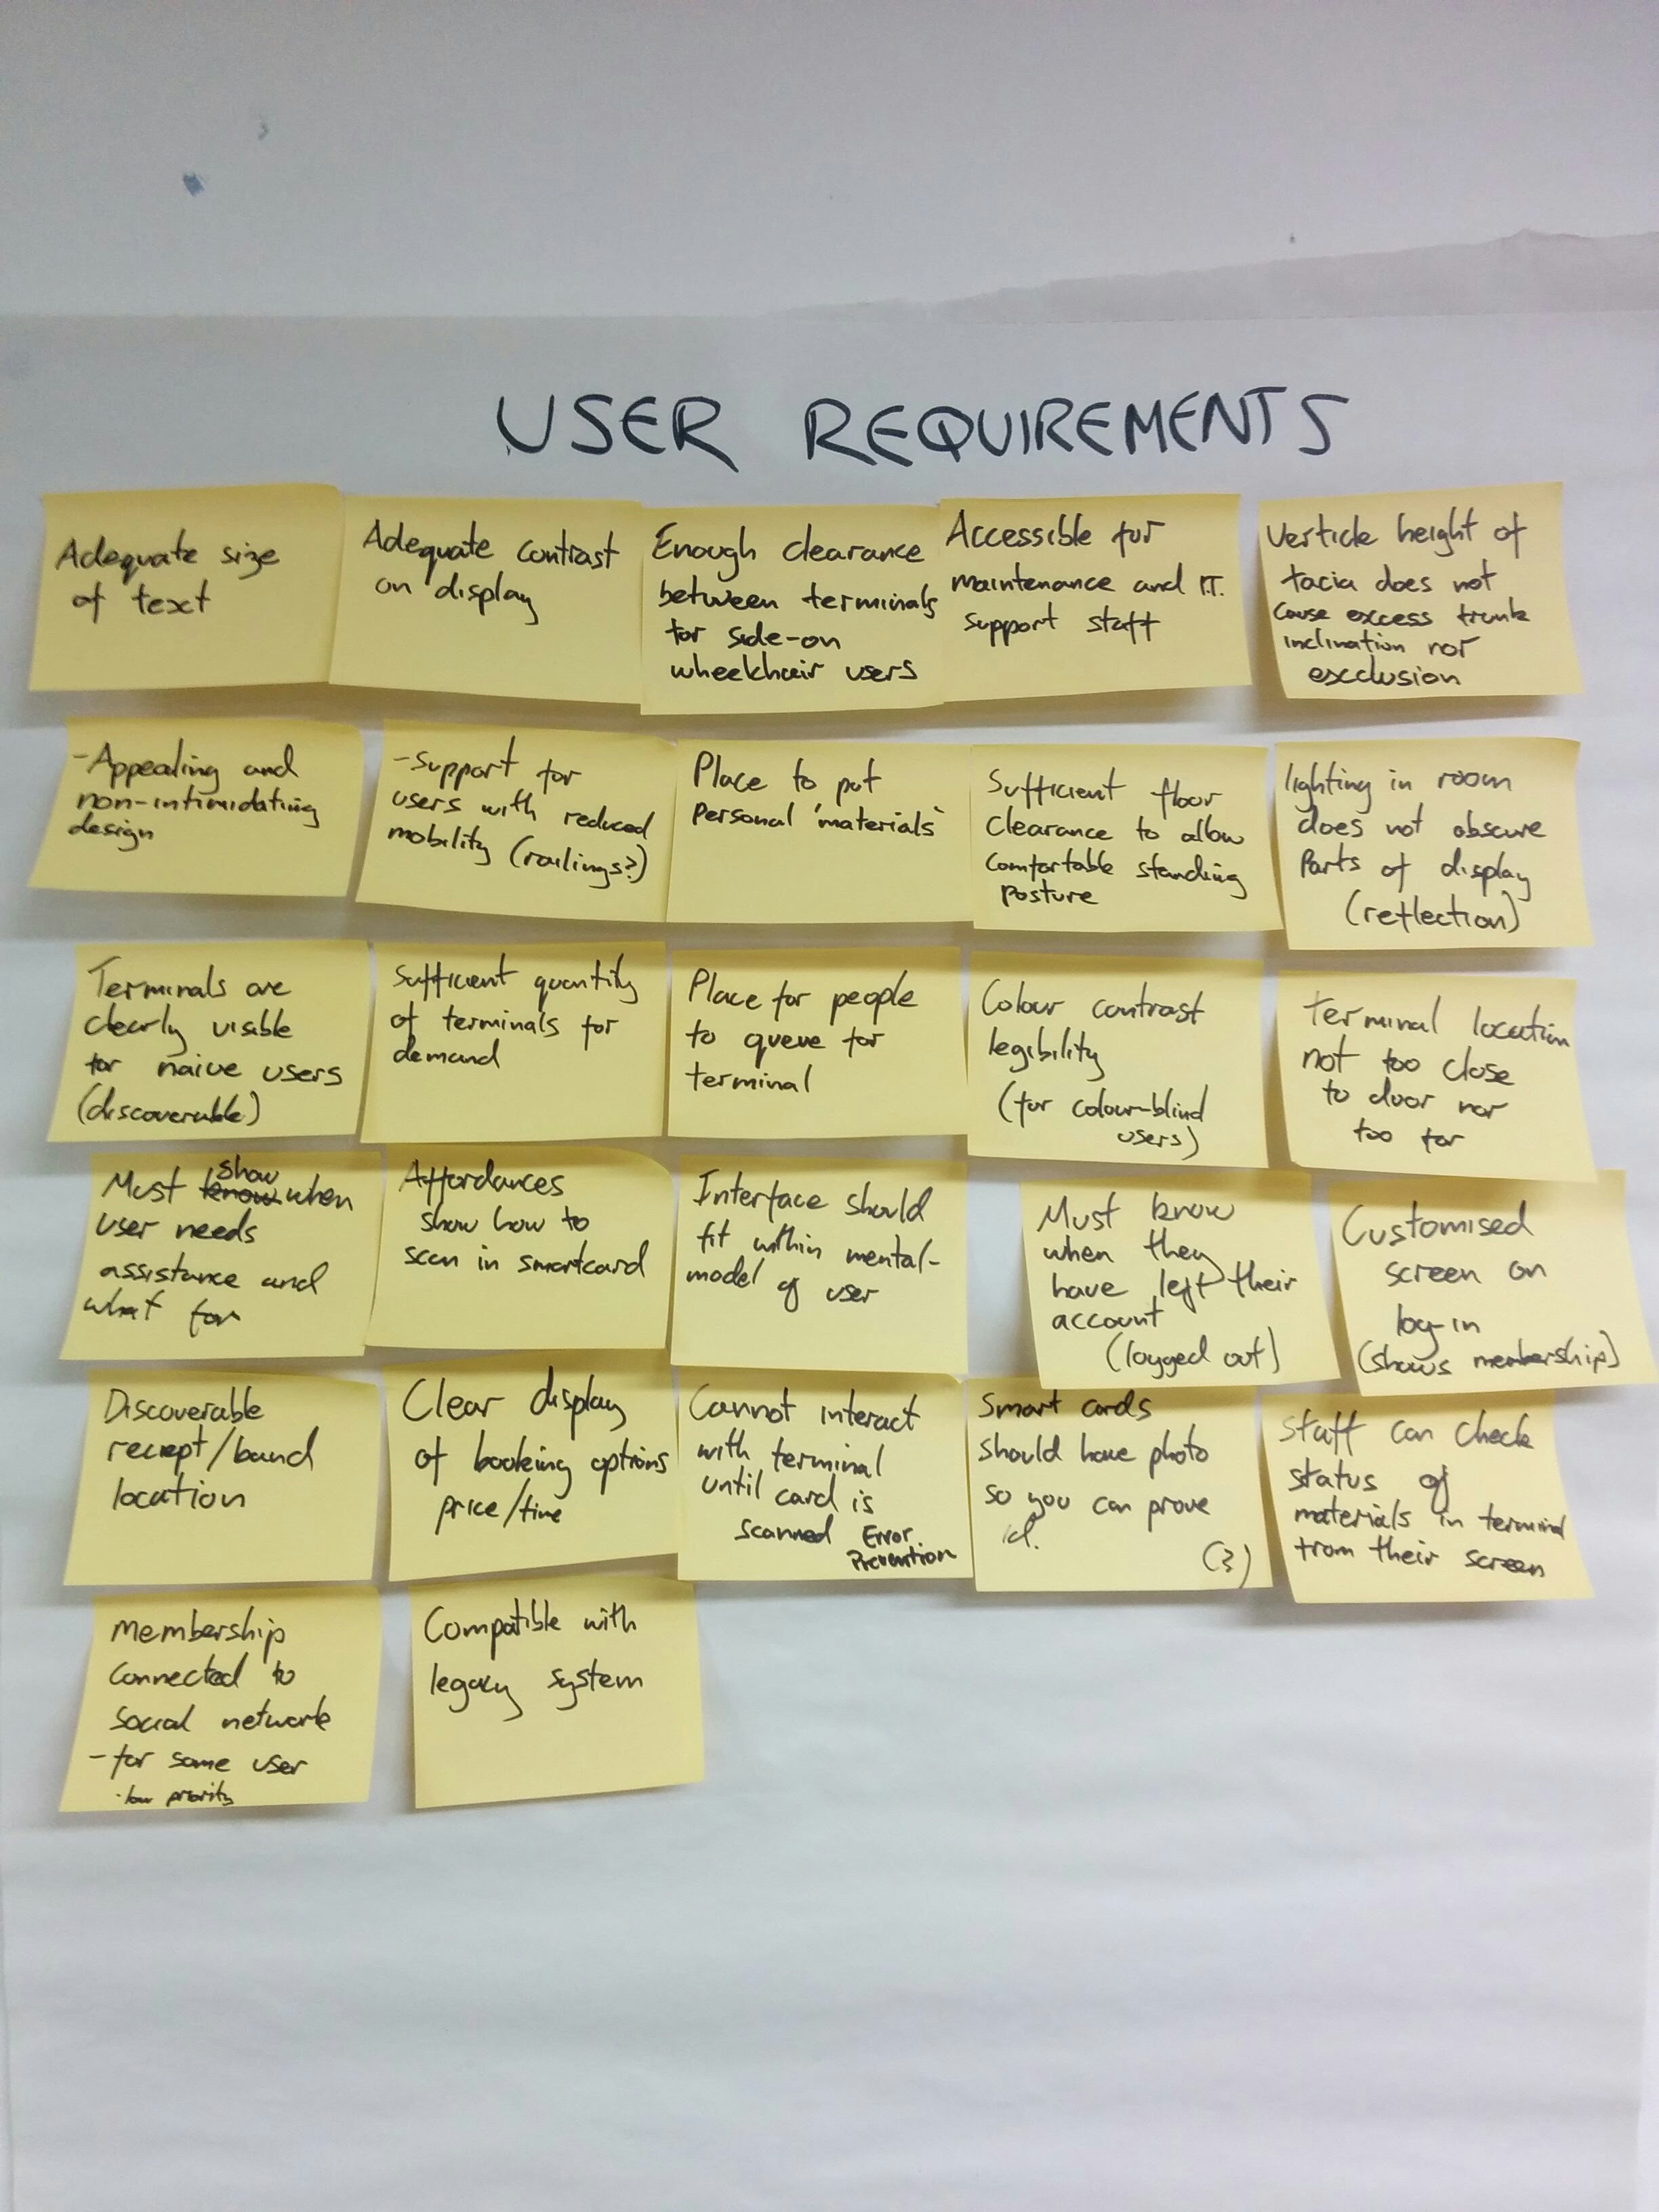 USER REQUIREMENTS
Adequate size
of text
Adequate contrast
on display
Enough clearance
between terminals
for side-on
wheelchair users
Accessible for
maintenance and I.T.
support staff
Verticle height of
facia does not
cause excess trunk
inclination nor
exclusion
-Appealing and
non-intimidating
design
-Support for
users with reduced
mobility (railings?)
Place to put
personal 'materials'
Sufficient floor
clearance to allow
comfortable standing
posture
lighting in room
does not obscure
parts of display
(reflection)
Terminals are
clearly visible
for naive users
(discoverable)
Sufficient quantity
of terminals for
demand
Place for people
to queue for
terminal
Colour contrast
legibility
(for colour-blind
users)
Terminal location
not too close
to door nor
too far
show
Must know when
user needs
assistance and
what for
Affordances
show how to
scan in smartcard
Interface should
fit within mental-
model of user
Must know
when they
have left their
account
(logged out)
Customised
screen on
log-in
(shows membership)
Discoverable
reciept/band
location
Clear display
of booking options
price/time
Cannot interact
with terminal
until card is
scanned Error
Prevention
Smart cards
should have photo
so you can prove
id.
(?)
Staff can check
status of
materials in terminal
from their screen
Membership
connected to
social network
- for some user
· low priority
Compatible with
legacy system